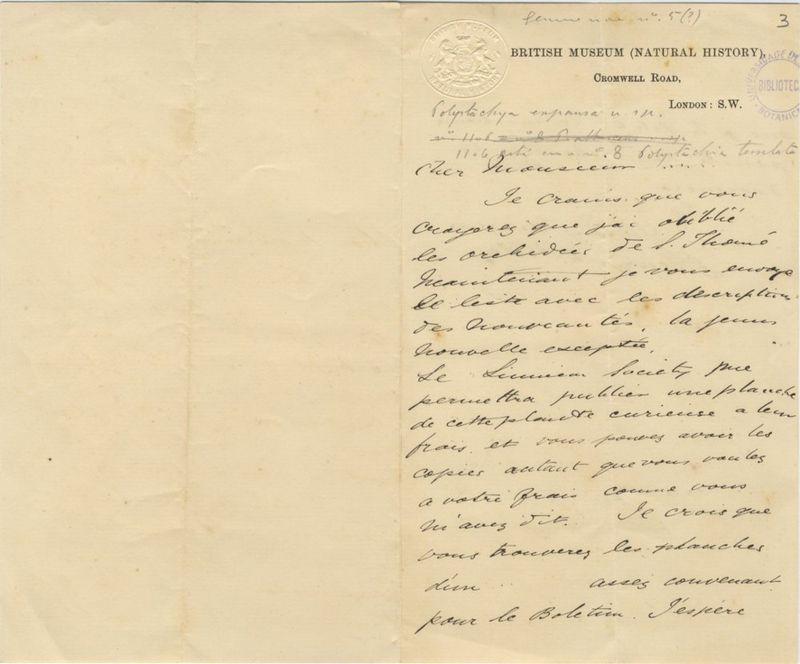 3
BRITISH MUSEUM (NATURAL HISTORY),
CROMWELL ROAD,
LONDON: S.W.
BIBLIOTECA
Polystachya expansa n. sp.
1106 est n°. 8 Polystachia
Cher Monsieur
Je crains que vous
croyerez que j'ai oublié
les orchidées de S. Thomé
Maintenant je vous envoye
le liste avec les descriptions
des nouveautés, la genus
nouvelle exceptée.
Le Linnean Society me
permettra publier une planche
de cette plante curieuse a leur
frais, et vous pouvez avoir les
copies autant que vous voulez
a votre frais comme vous
m'avez dit. Je crois que
vous trouverez les planches
d'un assez convenant
pour le Boletim. J'espère